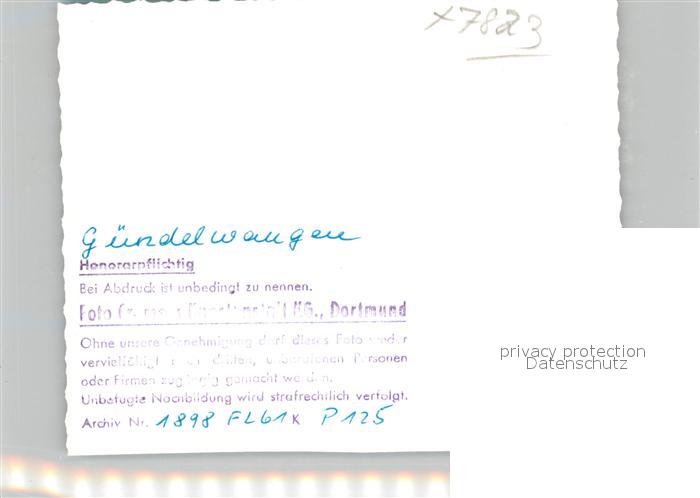 x7823
Gündelwangen
Honorarpflichtig
Bei Abdruck ist unbedingt zu nennen.
Foto KG., Dortmund
Ohne unsere Genehmigung darf dieses Foto weder
vervielfältigt dritten, unberufenen Personen
oder Firmen zugängig gemacht werden.
Unbefugte Nachbildung wird strafrechtlich verfolgt.
Archiv Nr. 1898 FL61K P125
privacy protection
Datenschutz